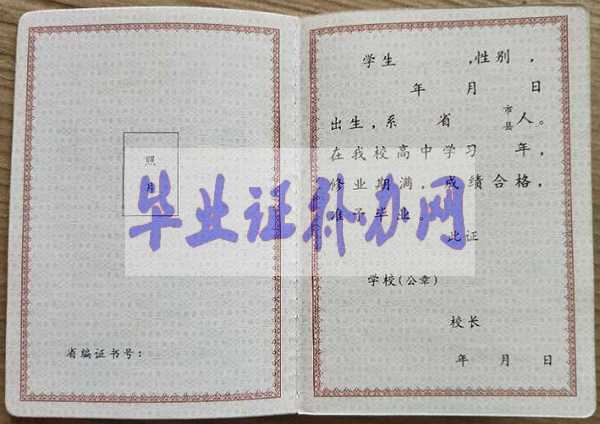 照
片
省编证书号：
学生　　　，性别　，
年　月　日
出生，系　省　市县　人。
在我校高中学习　年，
修业期满，成绩合格，
准予毕业。
此证
学校（公章）
校长
年　月　日
毕业证补办网